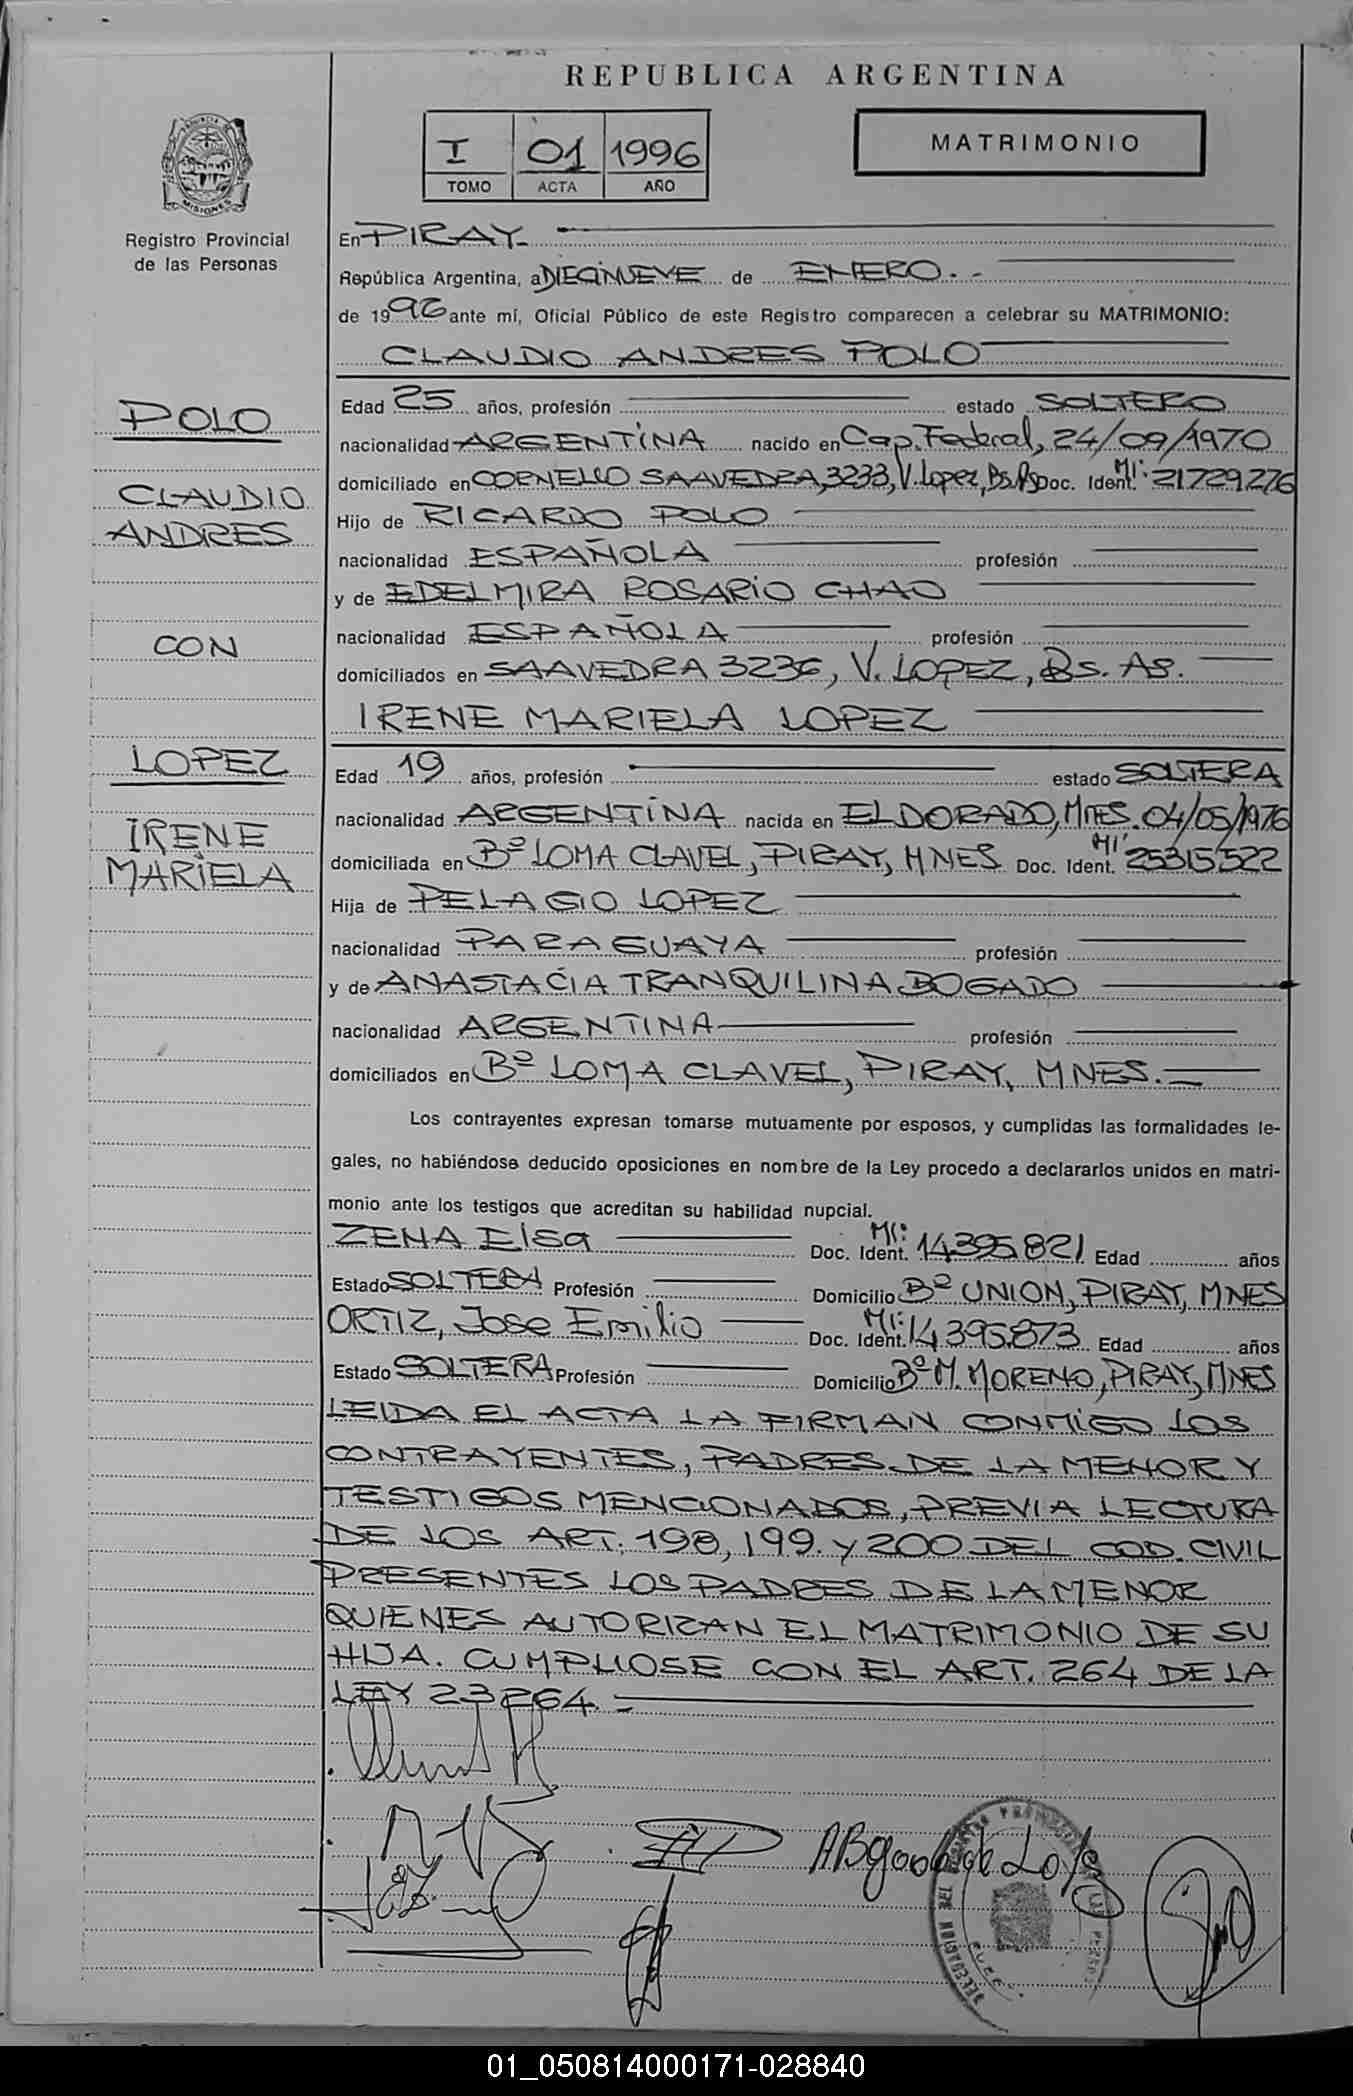 REPUBLICA ARGENTINA
I 01 1996
TOMO ACTA AÑO
MATRIMONIO
MISIONES
Registro Provincial
de las Personas
En PIRAY.
República Argentina, a DIECINUEVE de ENERO.-
de 1996 ante mí, Oficial Público de este Registro comparecen a celebrar su MATRIMONIO:
CLAUDIO ANDRES POLO
POLO
CLAUDIO
ANDRES
CON
LOPEZ
IRENE
MARIELA
Edad 25 años, profesión estado SOLTERO
nacionalidad ARGENTINA nacido en Cap. Federal, 24/09/1970
domiciliado en CORNELLO SAAVEDRA, 3233, V. Lopez, Bs. As Doc. Ident. MI: 21729276
Hijo de RICARDO POLO
nacionalidad ESPAÑOLA profesión
y de EDELMIRA ROSARIO CHAO
nacionalidad ESPAÑOLA profesión
domiciliados en SAAVEDRA 3236, V. LOPEZ, Bs. As.
IRENE MARIELA LOPEZ
Edad 19 años, profesión estado SOLTERA
nacionalidad ARGENTINA nacida en ELDORADO, MNES. 04/05/1976
domiciliada en Bº LOMA CLAVEL, PIRAY, MNES Doc. Ident. MI 25315522
Hija de PELAGIO LOPEZ
nacionalidad PARAGUAYA profesión
y de ANASTACIA TRANQUILINA BOGADO
nacionalidad ARGENTINA profesión
domiciliados en Bº LOMA CLAVEL, PIRAY, MNES.
Los contrayentes expresan tomarse mutuamente por esposos, y cumplidas las formalidades le-
gales, no habiéndose deducido oposiciones en nombre de la Ley procedo a declararlos unidos en matri-
monio ante los testigos que acreditan su habilidad nupcial.
ZENA Elsa Doc. Ident. MI: 14.395.821 Edad años
Estado SOLTERA Profesión Domicilio Bº UNION, PIRAY, MNES
ORTIZ, Jose Emilio Doc. Ident. MI: 14.395.873 Edad años
Estado SOLTERA Profesión Domicilio Bº M. MORENO, PIRAY, MNES
LEIDA EL ACTA LA FIRMAN CONMIGO LOS
CONTRAYENTES, PADRES DE LA MENOR Y
TESTIGOS MENCIONADOS, PREVIA LECTURA
DE LOS ART. 198, 199. y 200 DEL COD. CIVIL
PRESENTES LOS PADRES DE LA MENOR
QUIENES AUTORIZAN EL MATRIMONIO DE SU
HIJA. CUMPLIOSE CON EL ART. 264 DE LA
LEY 23264.-
01_050814000171-028840